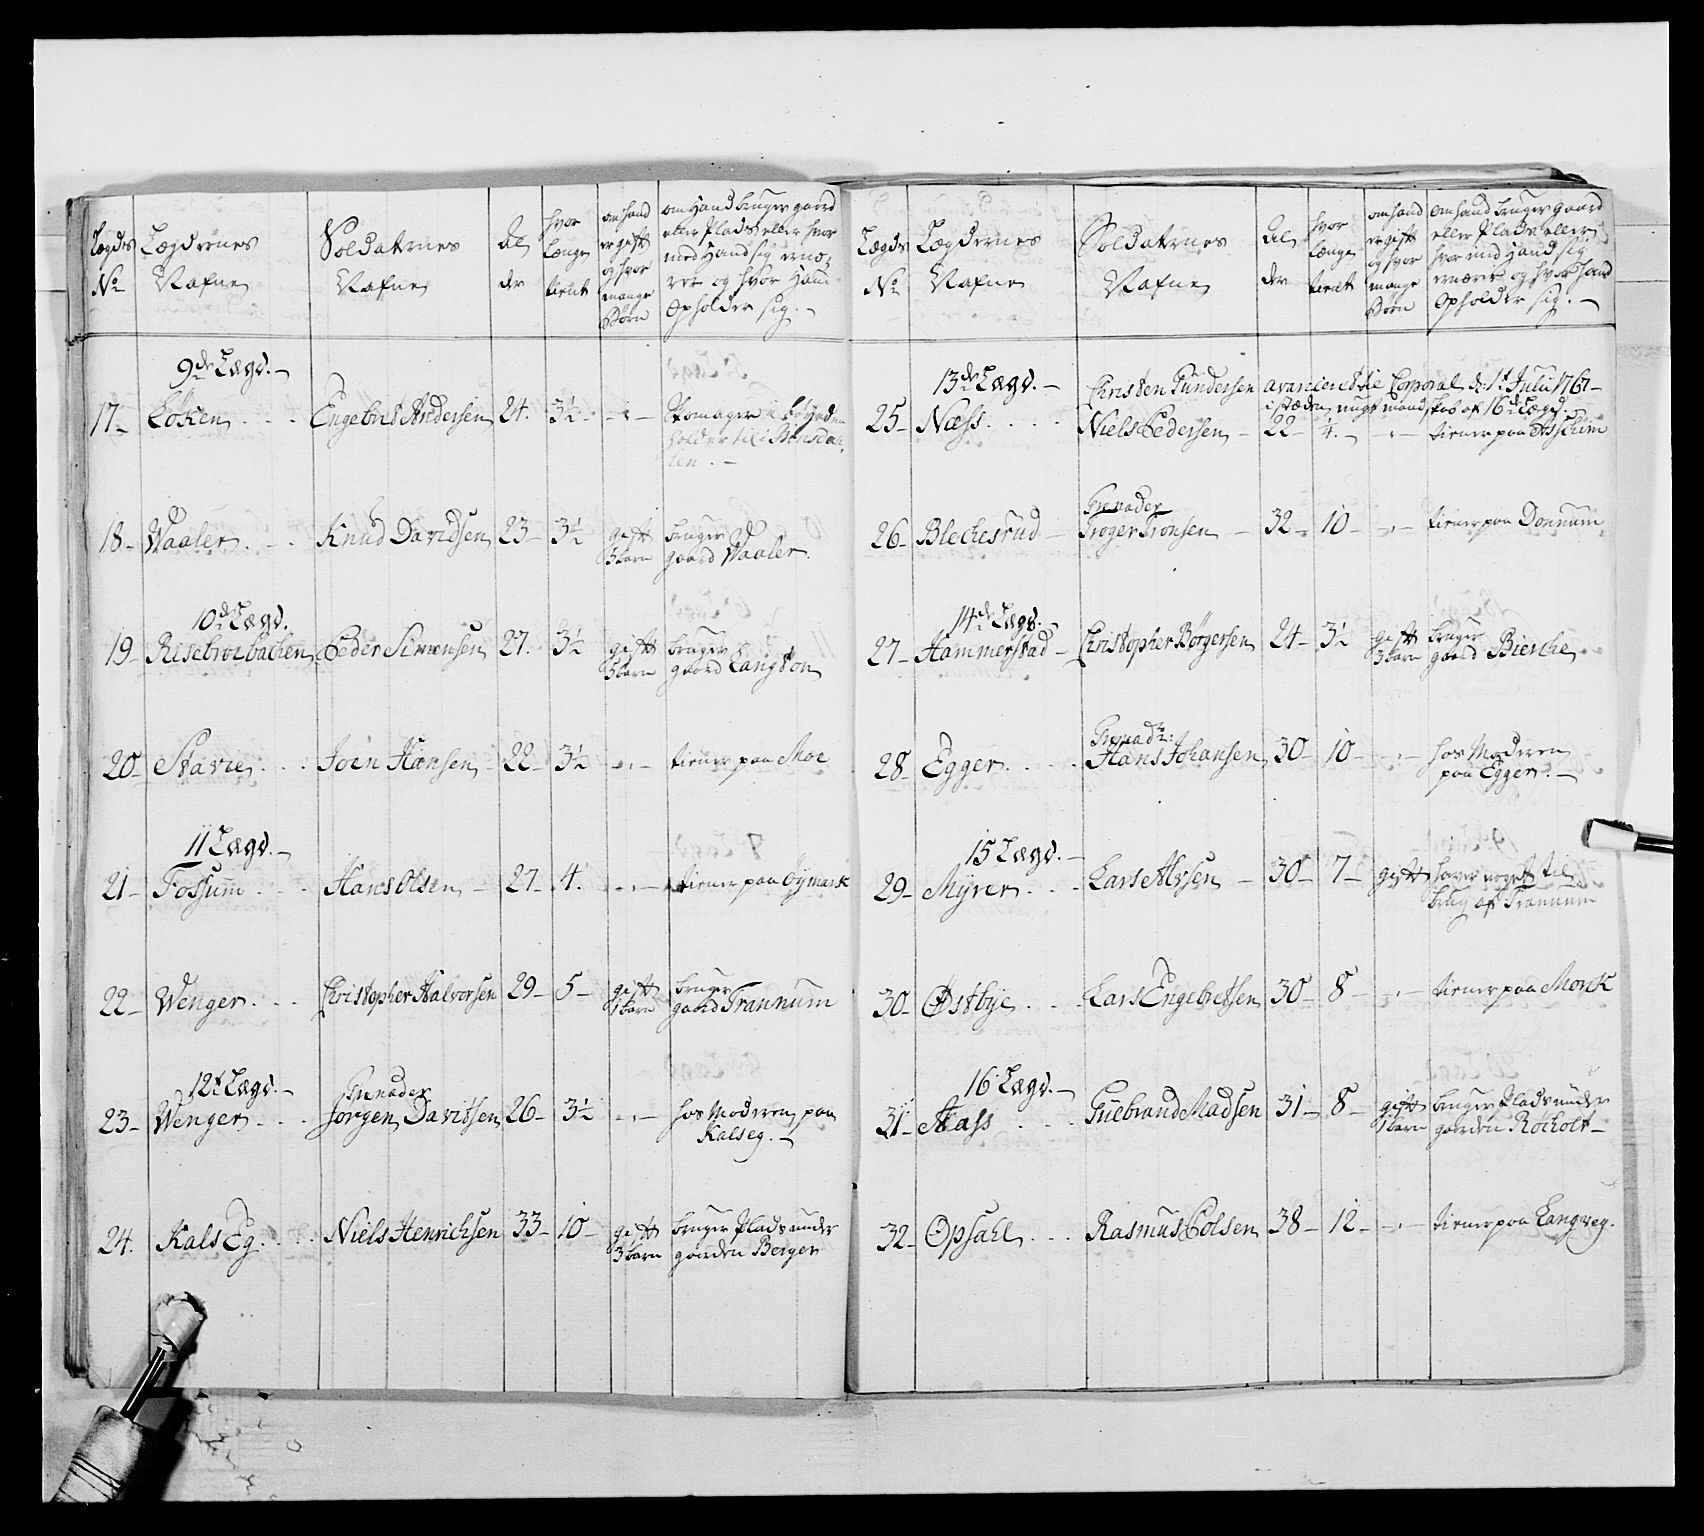 Lægdes No | Lægdernes Nafne | Soldaternes Nafne | Alder | hvor længe tient | om hand er gift og hvor mange Børn | om Hand bruger gaard eller Plads eller hvor med Hand sig ernærer og hvor Hand Opholder sig.
9de Lægd.
17 Løken Engebret Andersen 24. 3½
18 Waaler Knud Davidsen 23 3½ gift 3 barn bruger gaard Waaler.
10de Lægd.
19 Peder Simensen 27. 3½ gift barn bruger gaard Langton
20 Stavie Joen Hansen 22 3½ tiener paa Moe
11 Lægd.
21 Fossum Hans Olsen 27 4. tiener paa Øymark
22 Wenger Christopher Halvorsen 29 5 gift 1 barn bruger gaard Trannum
12te Lægd.
Grenader
23 Wenger Jørgen Davidsen 26 3½ hos Moderen paa Kalseg.
24. Kals Eg. Niels Henrichsen 33 10 gift 3 barn bruger Plads under gaarden Berger
Lægdes No | Lægdernes Nafne | Soldaternes Nafne | Alder | hvor længe tient | om hand er gift og hvor mange Børn | om hand bruger gaard eller Plads eller hvor med Hand sig ernærer og hvor Hand Opholder sig.
13de Lægd.
Christen Gundersen avancient die Corporal d: 1t Julii 1767
i stæden nygt mandskab af 16de Lægd.
25 Næss. Niels Pedersen 22 ¼. tiener paa Asschim
Grenader
26 Blechesrud Tronsen 32 10 tiener paa Donnum
14de Lægd.
27 Hammerstad Christopher Børgersen 24 3½ gift 3 barn bruger gaard Bierche
Grenadr:
28 Egger Hans Johansen 30 10 hos Moderen paa Egger.
15 Lægd.
29 Myrer Lars Alvsen 30 7 gift haver noget til brug af Trannum
30 Østbye Lars Engebretsen 30 8 tiener paa Mork
16 Lægd.
31 Aass Guebrand Madsen 31 8 gift 1 barn bruger Plads under gaarden Røholt
32 Opsahl Rasmus Polsen 38 12 tiener paa Langveg.